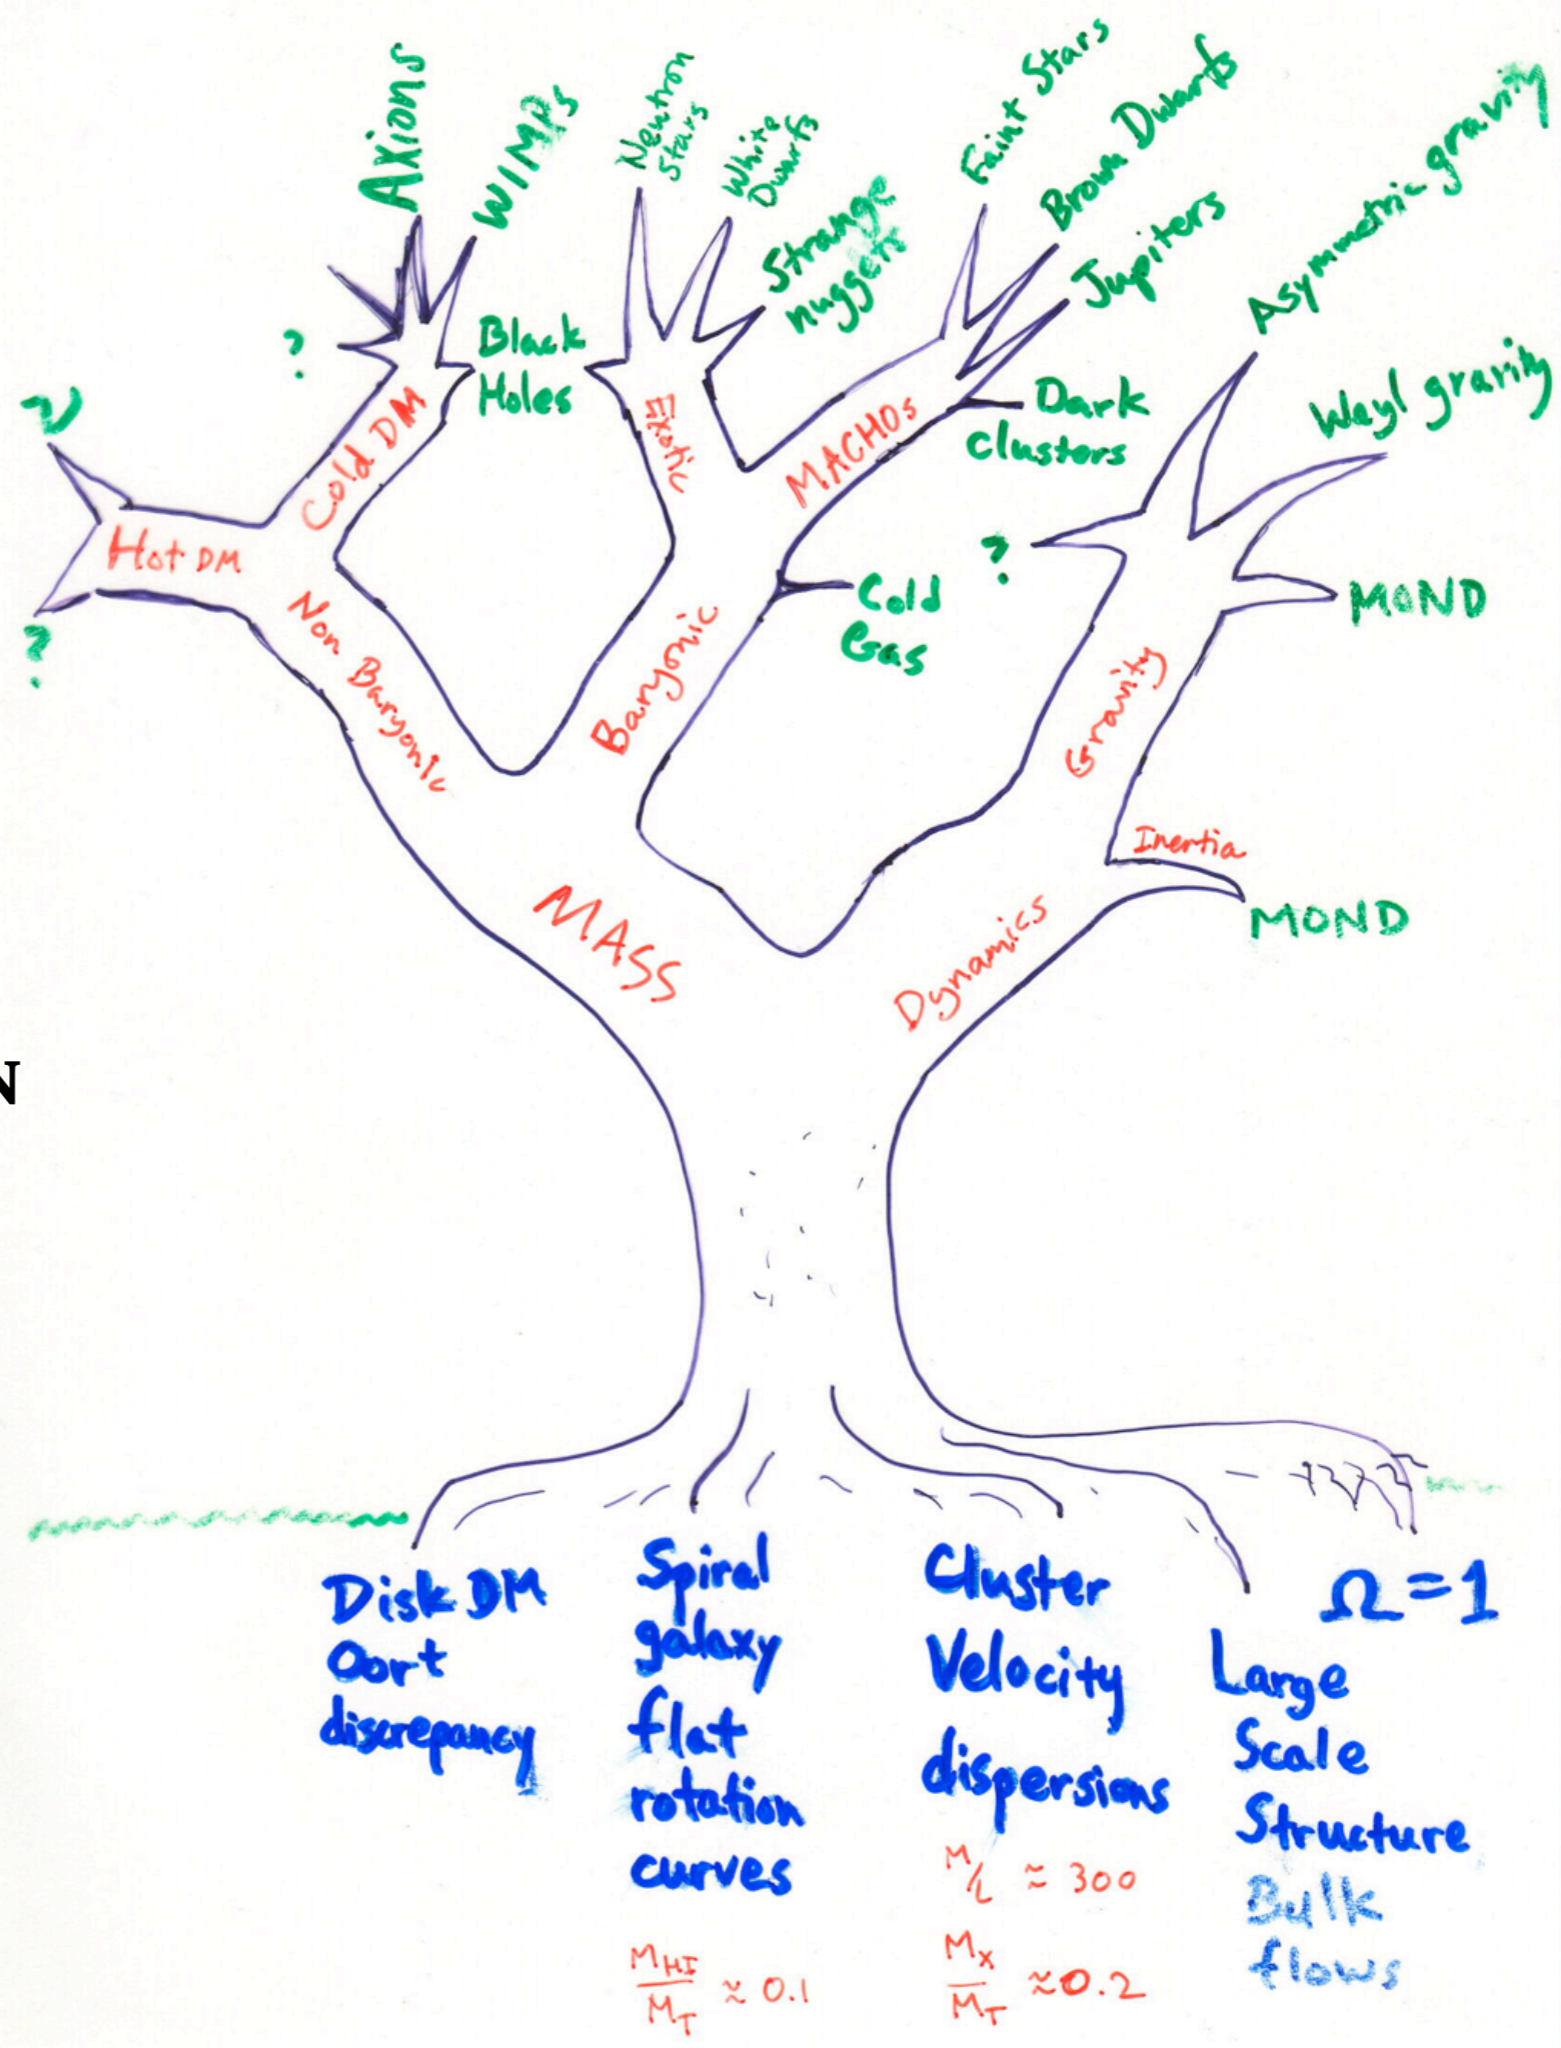 Axions
WIMPs
Neutron
Stars
White
Dwarfs
Strange
nuggets
Faint Stars
Brown Dwarfs
Jupiters
Asymmetric gravity
Weyl gravity
?
Black
Holes
ν
Cold DM
Exotic
MACHOs
Dark
clusters
Hot DM
?
?
Cold
Gas
MOND
Non Baryonic
Baryonic
Gravity
Inertia
MOND
MASS
Dynamics
N
Disk DM
Oort
discrepancy
Spiral
galaxy
flat
rotation
curves
M_HI/M_T ≈ 0.1
Cluster
Velocity
dispersions
M/L ≈ 300
M_X/M_T ≈ 0.2
Ω = 1
Large
Scale
Structure
Bulk
flows